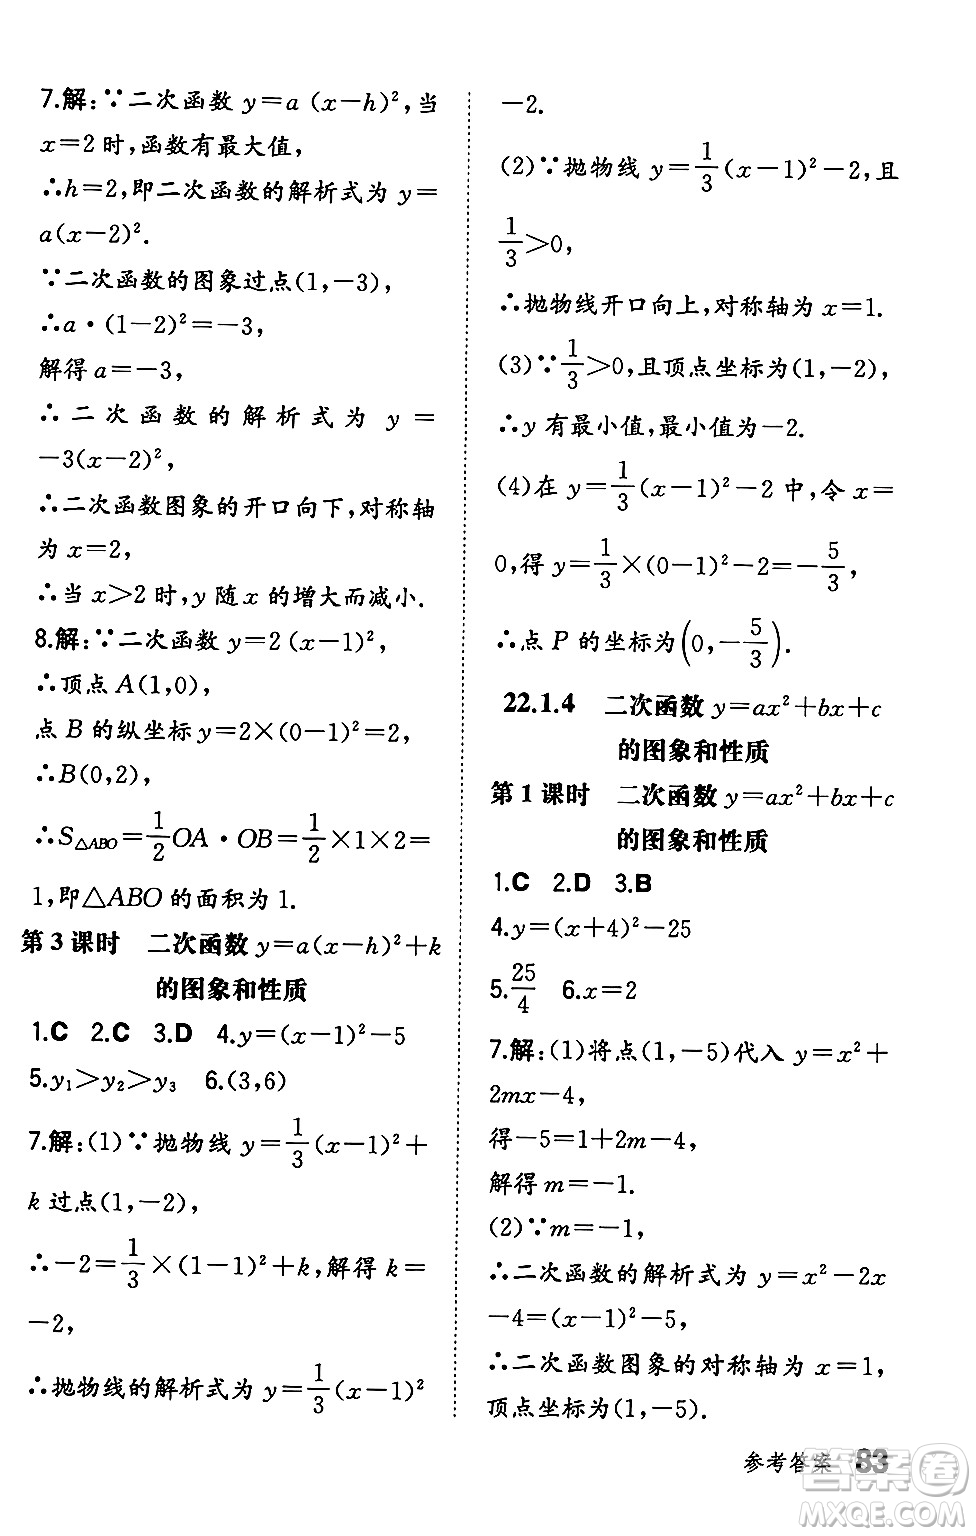 7.解:∵二次函数 y=a (x-h)²,当
x=2 时,函数有最大值,
∴h=2,即二次函数的解析式为 y=
a(x-2)².
∵二次函数的图象过点(1,-3),
∴a·(1-2)²=-3,
解得 a=-3,
∴二次函数的解析式为 y=
-3(x-2)²,
∴二次函数图象的开口向下,对称轴
为 x=2,
∴当 x>2 时,y 随 x 的增大而减小.
8.解:∵二次函数 y=2 (x-1)²,
∴顶点 A(1,0),
点 B 的纵坐标 y=2×(0-1)²=2,
∴B(0,2),
∴S△ABO=1/2 OA·OB=1/2×1×2=
1,即△ABO 的面积为 1.
第 3 课时 二次函数 y=a(x-h)²+k
的图象和性质
1.C 2.C 3.D 4.y=(x-1)²-5
5.y₁>y₂>y₃ 6.(3,6)
7.解:(1)∵抛物线 y=1/3(x-1)²+
k 过点(1,-2),
∴-2=1/3×(1-1)²+k,解得 k=
-2,
∴抛物线的解析式为 y=1/3(x-1)²
-2.
(2)∵抛物线 y=1/3(x-1)²-2,且
1/3>0,
∴抛物线开口向上,对称轴为 x=1.
(3)∵1/3>0,且顶点坐标为(1,-2),
∴y 有最小值,最小值为-2.
(4)在 y=1/3(x-1)²-2 中,令 x=
0,得 y=1/3×(0-1)²-2=-5/3,
∴点 P 的坐标为(0,-5/3).
22.1.4 二次函数 y=ax²+bx+c
的图象和性质
第 1 课时 二次函数 y=ax²+bx+c
的图象和性质
1.C 2.D 3.B
4.y=(x+4)²-25
5.25/4 6.x=2
7.解:(1)将点(1,-5)代入 y=x²+
2mx-4,
得-5=1+2m-4,
解得 m=-1.
(2)∵m=-1,
∴二次函数的解析式为 y=x²-2x
-4=(x-1)²-5,
∴二次函数图象的对称轴为 x=1,
顶点坐标为(1,-5).
参考答案 83
答案圈
MXQE.COM